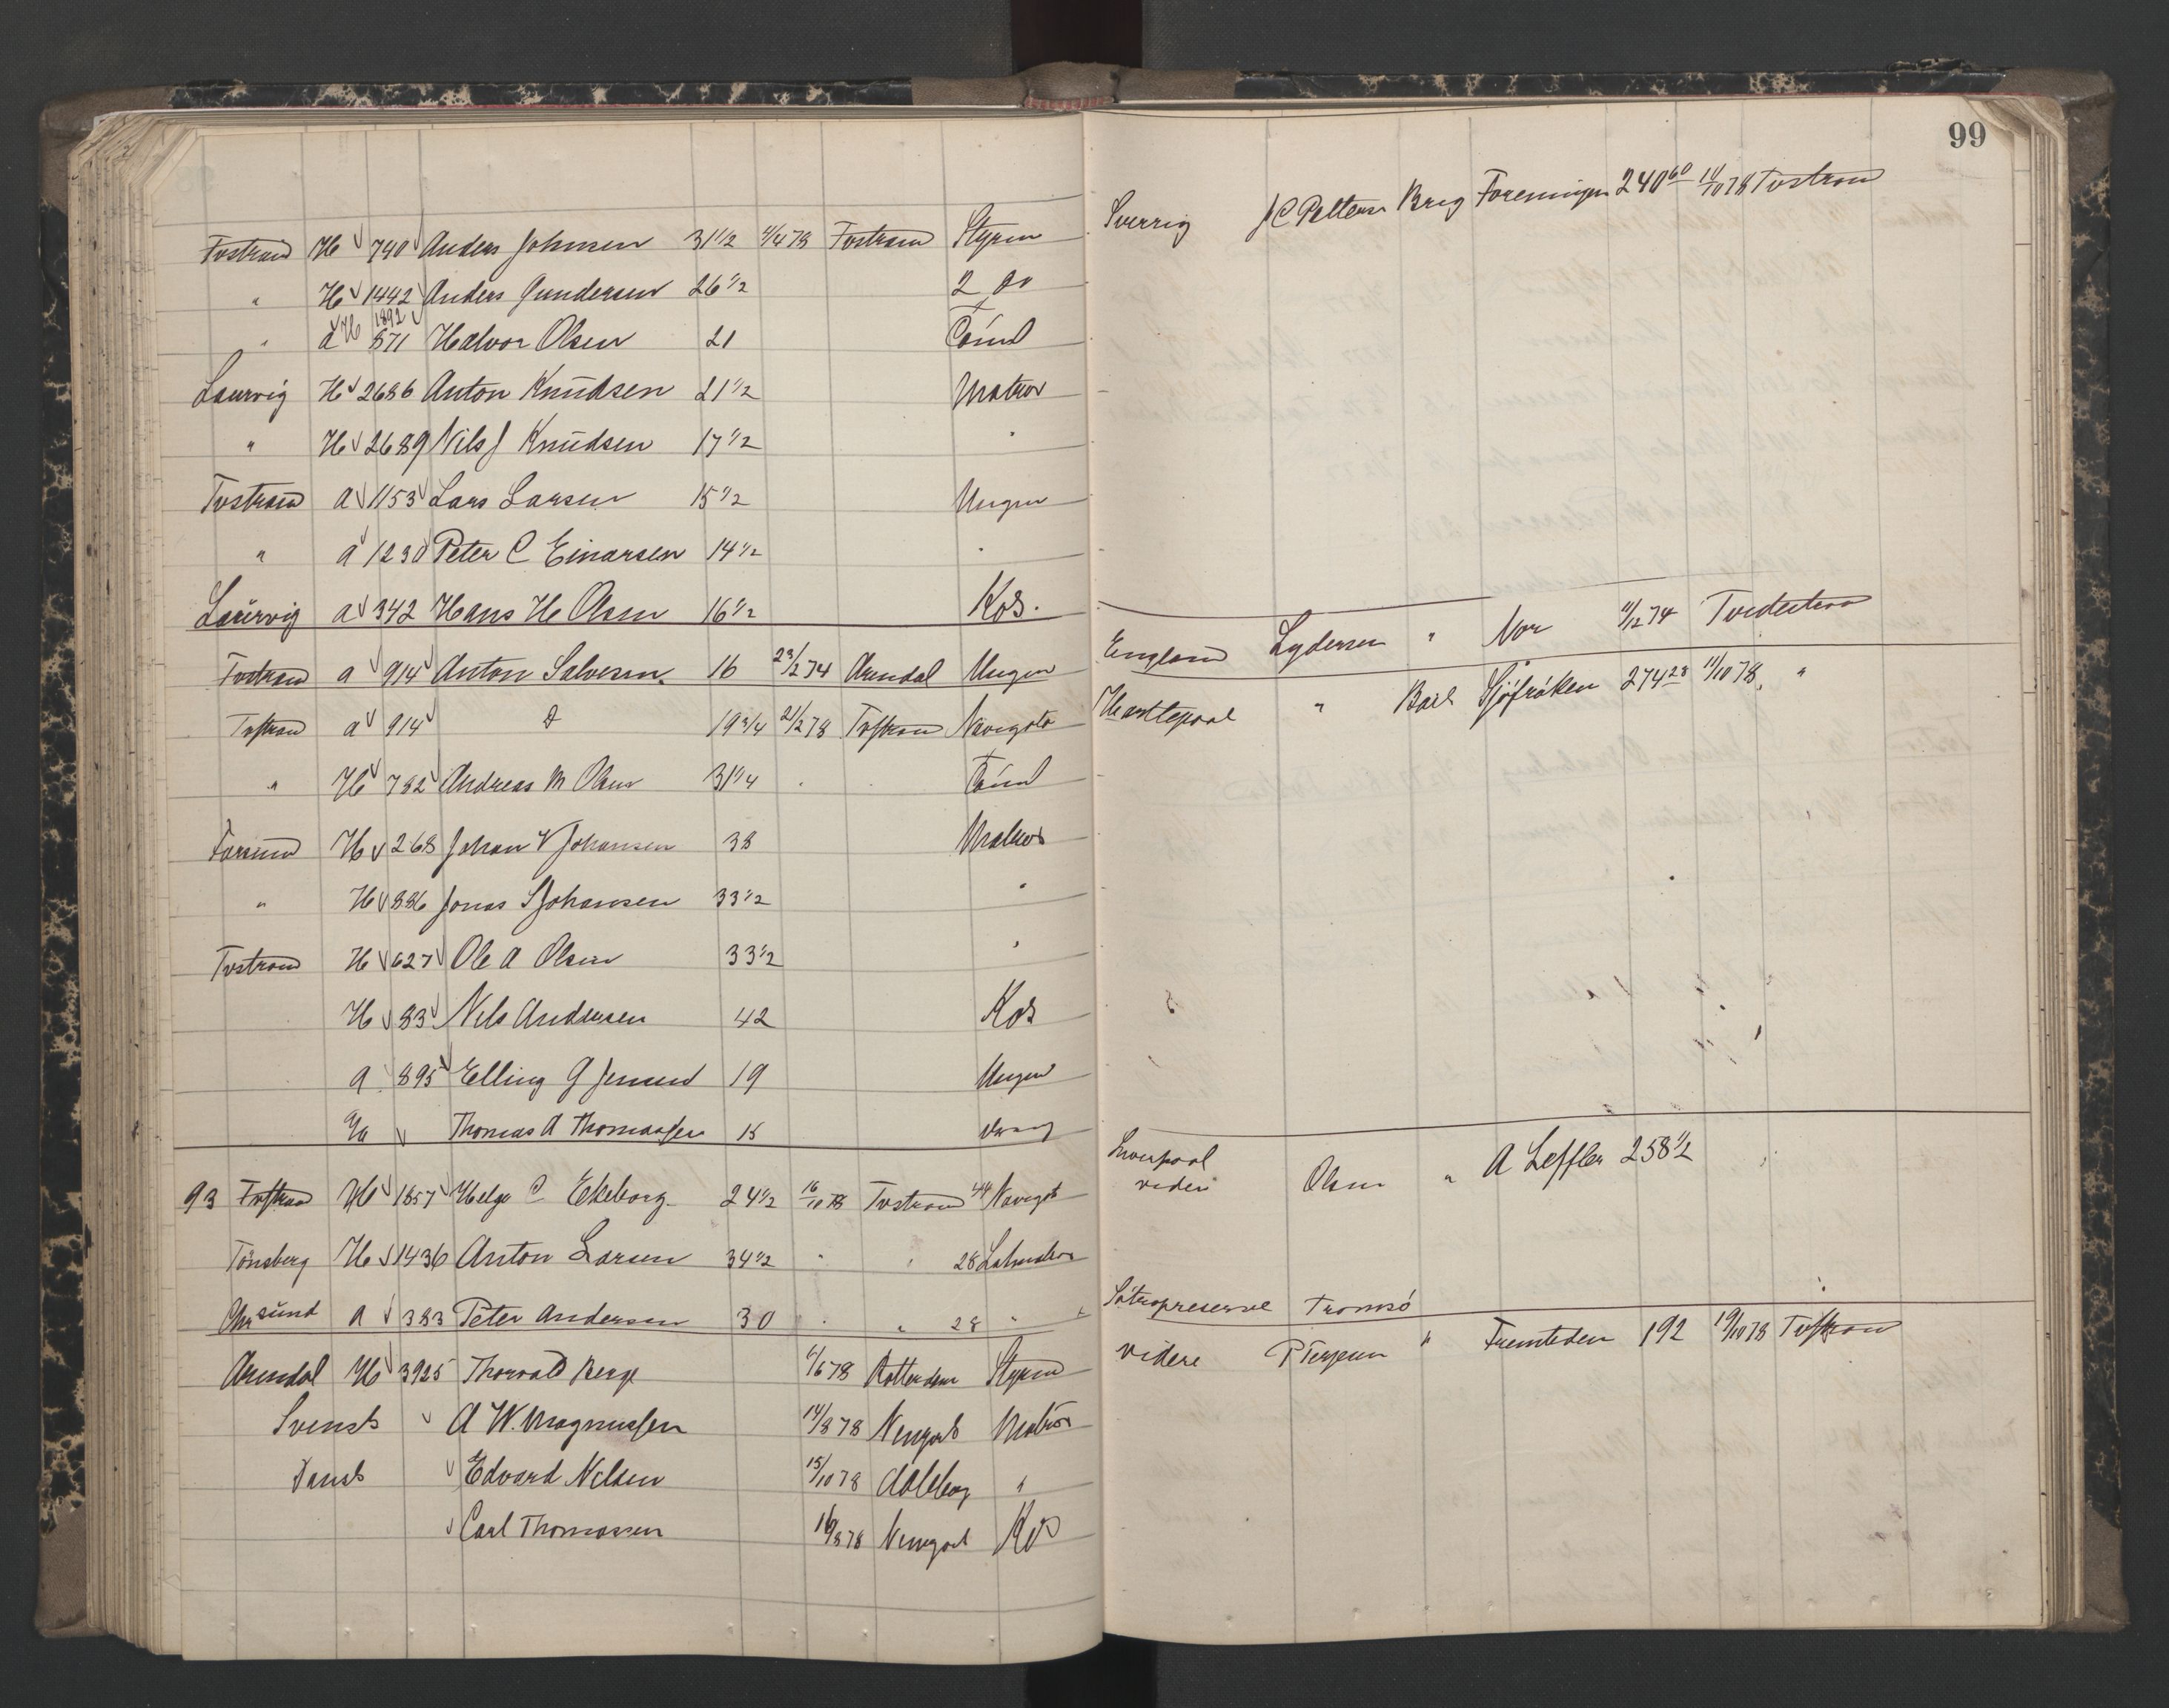 99
Tvstrand H 740 Anders Johnsen 31 1/2 4/4 78 Tvstrand Styrm Sverrig J C Pettersen Brig Foreningen 240 60 14/10 78 Tvstrand
" H 1442 Anders Gundersen 26 1/2 2 do
1892
" a H 871 Halvor Olsen 21 Tømd
Laurvig H 2686 Anton Knudsen 21 1/2 Matros
" H 2689 Nils J Knudsen 17 1/2 "
Tvstrand a 1153 Lars Larsen 15 1/2 Ungm
" a 1230 Peter C Einarsen 14 1/2 "
Laurvig a 342 Hans H Olsen 16 1/2 Kok.
Tvstrand a 914 Anton Salvesen 16 23/2 74 Arendal Ungm England Lydersen " Nor 11/12 74 Tvedestra
Tvstran a 914 D 19 3/4 21/2 78 Tvstran Navigatø Hartlepool " Bark Sjøfrøken 274 28 11/10 78 "
" H 782 Andreas M Olsen 31 1/4 Tømd
Farsund H 268 Johan V Johansen 38 Matros
" H 886 Jonas S Johansen 33 1/2 "
Tvstrand H 627 Ole A Olsen 33 1/2 "
H 83 Nils Andersen 42 Kok
a 895 Elling G Jensen 19 Ungm
Thomas A Thomassen 15 dreng
93 Tvstran H 1857 Helge C Ekeborg 24 1/2 16/10 78 Tvstrand 44 Navigat Liverpool videre Olsen " A Leffler 258 1/2 "
Tønsberg H 1436 Anton Larsen 34 1/2 " " 28
Chrsund a 383 Peter Andersen 30 " " 28 " Tromsø
Arendal H 3925 Thorvald Berge 1/6 78 Rotterdam Styrm videre P Terjesen " Fremtiden 192 19/10 78 Tvstran
Svensk A W. Magnussen 14/8 78 Newyork Matros
Dansk Edvard Nilsen 15/10 78 Aalborg "
Carl Thomassen 16/8 78 Newyork Kok